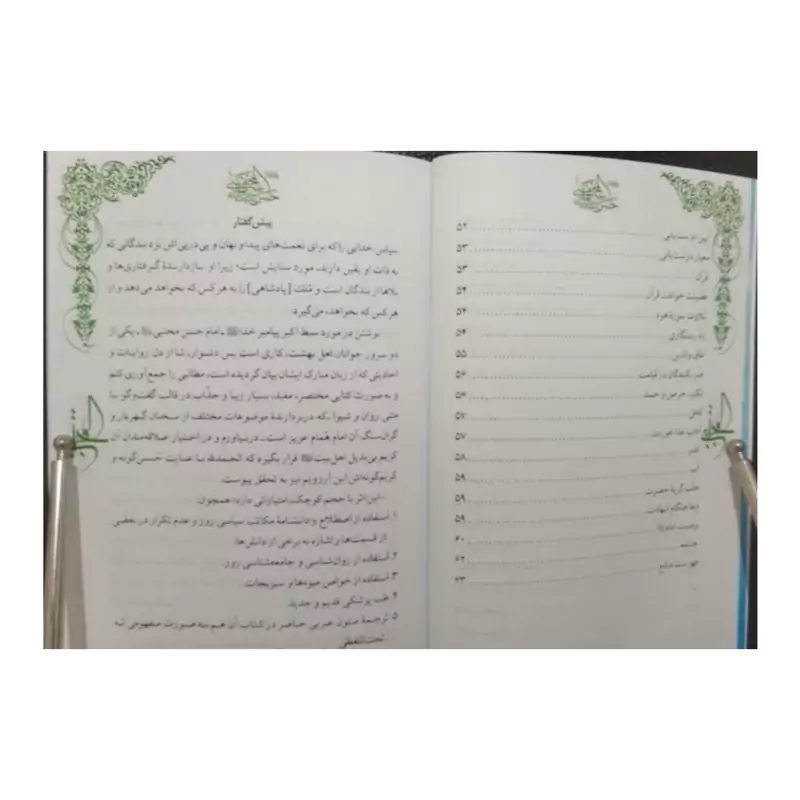 آیین دوست‌یابی ۵۲
معیار دوست‌یابی ۵۳
قرآن ۵۳
فضیلت خواندن قرآن ۵۴
تلاوت سوره هود ۵۴
راه رستگاری ۵۴
عاق والدین ۵۵
صبر کنندگان در قیامت ۵۶
تکبر، حرص و حسد ۵۶
عقل ۵۷
آداب غذا خوردن ۵۷
۵۸
۵۸
علت گریهٔ حضرت ۵۹
وصایا هنگام شهادت ۵۹
وصیت ۶۰
خاتمه ۶۲
فهرست منابع ۶۳
پیش‌گفتار
سپاس خدایی را که برای نعمت‌های پیدا و نهان و پی‌درپی‌اش نزد بندگانی که
به ذات او یقین دارند، مورد ستایش است؛ زیرا او بازدارندهٔ گرفتاری‌ها و
بلاها از بندگان است و مُلک [پادشاهی] را به هر کس که بخواهد می‌دهد و از
هر کس که بخواهد، می‌گیرد.
نوشتن در مورد سبط اکبر پیامبر خدا ﷺ، امام حسن مجتبی، یکی از
دو سرور جوانان اهل بهشت، کاری است بس دشوار، تا از دل روایات و
احادیثی که از زبان مبارک ایشان بیان گردیده است، مطالبی را جمع‌آوری کنم
و به صورت کتابی مختصر، مفید، بسیار زیبا و جذّاب در قالب گفت‌وگو با
متنی روان و شیوا ـ که دربردارندهٔ موضوعات مختلف از سخنان گهربار و
گران‌سنگ آن امام هُمام عزیز است ـ دربیاورم و در اختیار علاقه‌مندان آن
کریم بی‌بدیل اهل‌بیت قرار بگیرد که الحمدلله با عنایت حَسن‌گونه و
کریم‌گونه‌اش این آرزویم نیز به تحقق پیوست.
این اثر با حجم کوچک، امتیازاتی دارد؛ همچون:
۱. استفاده از اصطلاح و دانشنامهٔ مکاتب سیاسی روز و عدم تکرار در بعضی
از قسمت‌ها و اشاره به برخی از دانش‌ها.
۲. استفاده از روان‌شناسی و جامعه‌شناسی روز.
۳. استفاده از خواص میوه‌ها و سبزیجات.
۴. طب پزشکی قدیم و جدید.
۵. ترجمهٔ متون عربی حاضر در کتاب آن هم به صورت مفهومی نه
تحت‌اللفظی